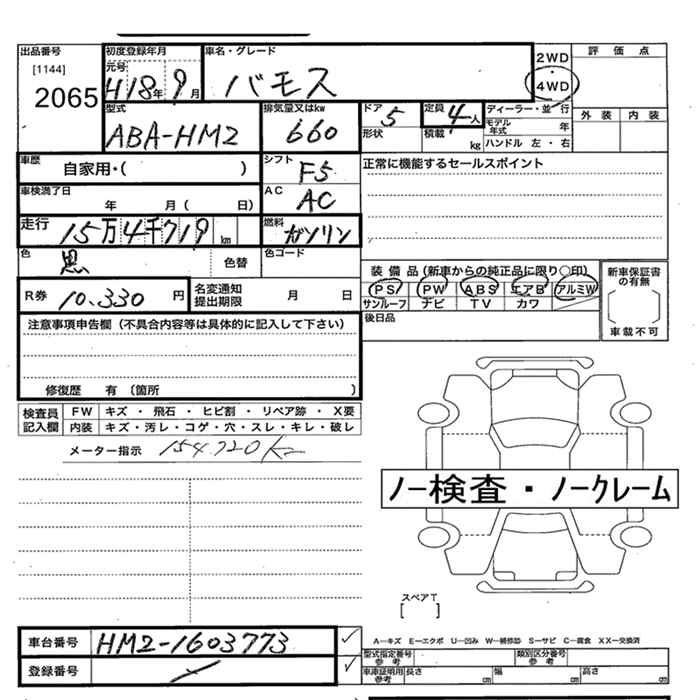 出品番号 初度登録年月 車名・グレード 2WD 評価点
[1144] 元号
2065 H18年 9月 バモス 4WD
型式 排気量又はkw ドア 5 定員 4人 ディーラー・並行 外装 内装
ABA-HM2 660 形状 積載 kg モデル年式 年
ハンドル 左・右
車歴 自家用・( ) シフト F5 正常に機能するセールスポイント
車検満了日 年 月( 日) AC AC
走行 15万4千719km 燃料 ガソリン
色 黒 色替 色コード
装備品(新車からの純正品に限り○印) 新車保証書の有無
R券 10.330円 名変通知提出期限 月 日 PS PW ABS エアB アルミW
サンルーフ ナビ TV カワ
注意事項申告欄(不具合内容等は具体的に記入して下さい) 後日品 車載不可
修復歴 有 〔箇所 〕
検査員 FW キズ・飛石・ヒビ割・リペア跡・X要
記入欄 内装 キズ・汚レ・コゲ・穴・スレ・キレ・破レ
メーター指示 154.720km
ノー検査・ノークレーム
スペアT
[ ]
車台番号 HM2-1603773 A―キズ E―エクボ U―凹み W―補修跡 S―サビ C―腐食 XX―交換済
型式指定番号 参考 類別区分番号 参考
登録番号 車庫証明用 参考 長さ cm 幅 cm 高さ cm